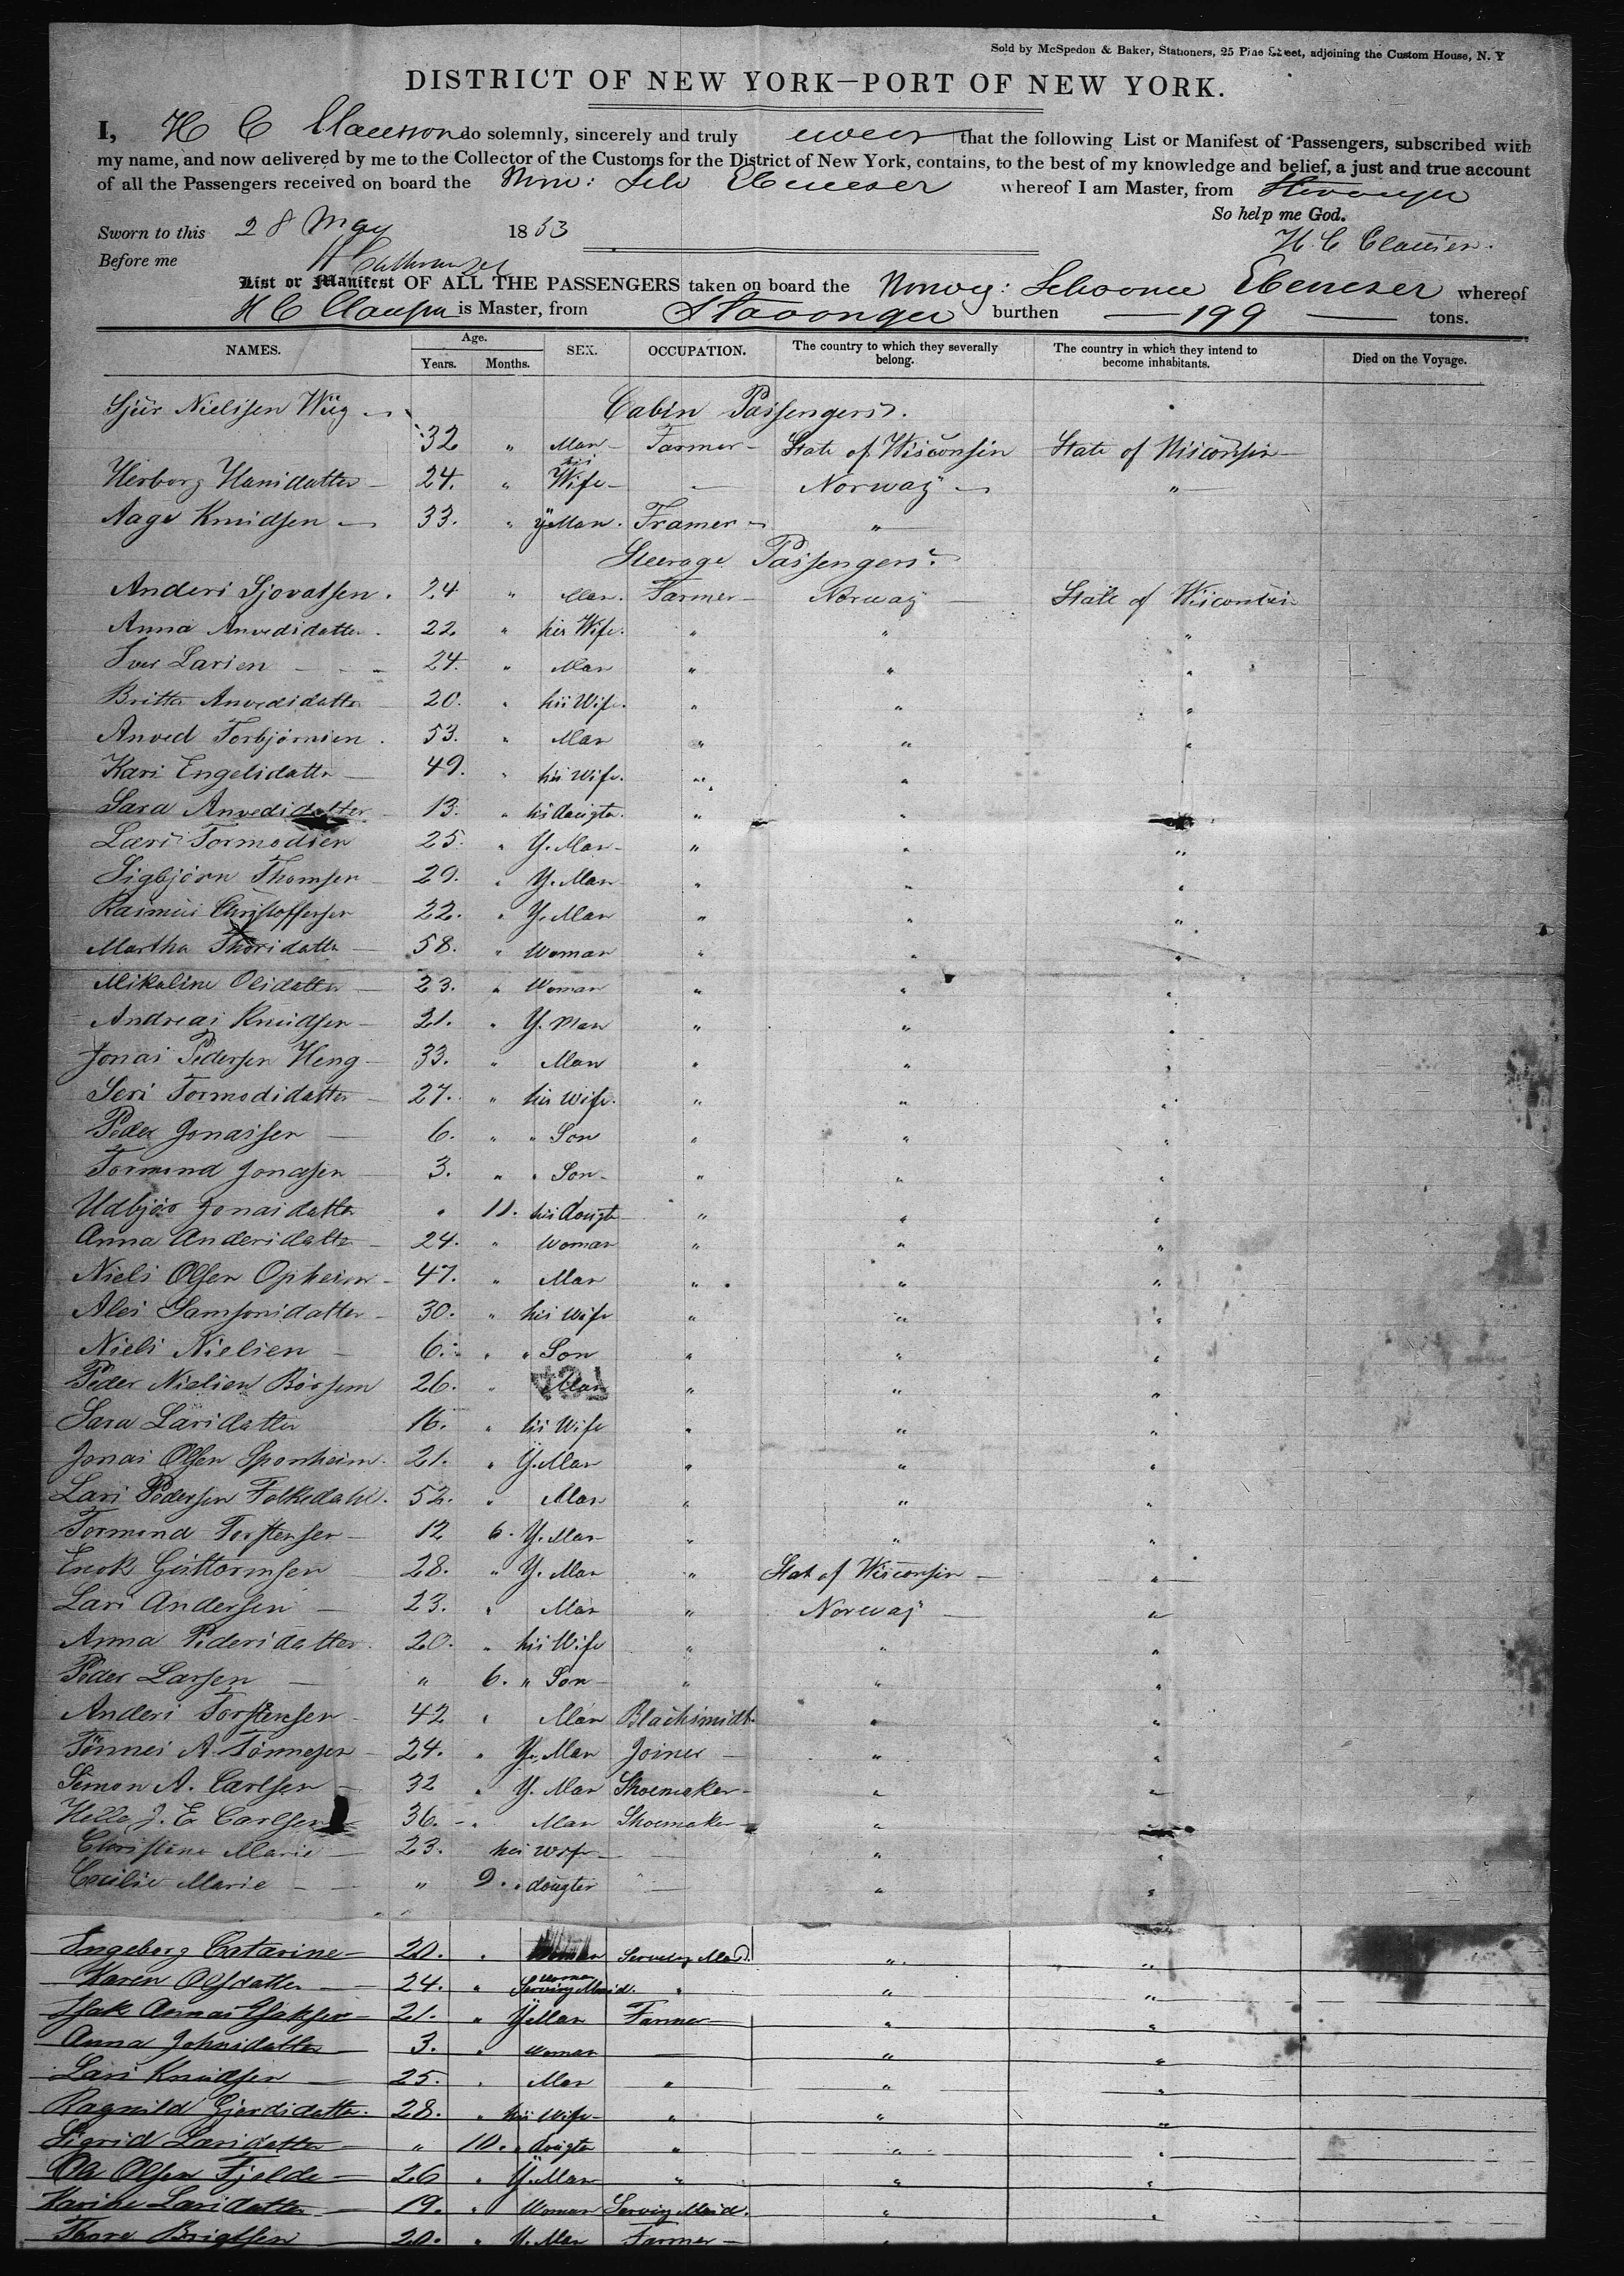 Sold by McSpedon & Baker, Stationers, 25 Pine Street, adjoining the Custom House, N. Y
DISTRICT OF NEW YORK—PORT OF NEW YORK.
I, H C Clausson do solemnly, sincerely and truly swear that the following List or Manifest of Passengers, subscribed with
my name, and now delivered by me to the Collector of the Customs for the District of New York, contains, to the best of my knowledge and belief, a just and true account
of all the Passengers received on board the Norw: Sch Ebeneser whereof I am Master, from Stavanger
So help me God.
Sworn to this 28 May 1853
H. C. Clausen.
Before me
List or Manifest OF ALL THE PASSENGERS taken on board the Norweg: Schooner Ebeneser whereof
H C Clausen is Master, from Stavanger burthen — 199 — tons.
NAMES. Age. Years. Months. SEX. OCCUPATION. The country to which they severally belong. The country in which they intend to become inhabitants. Died on the Voyage.
Cabin Passengers.
Sjur Nielsen Wiig 32 " Man Farmer State of Wisconsin State of Wisconsin
Herborg Hansdatter 24. " his Wife — Norway "
Aage Knudsen 33. " y Man. Framer "
Steerage Passengers.
Anders Sjovatsen. 24 " Man. Farmer Norway State of Wisconsin
Anna Anvedsdatter. 22 " his Wife. " " "
Iver Larsen 24. " Man " " "
Britta Anvedsdatter 20. " his Wife. " " "
Anved Torbjörnsen. 53. " Man " " "
Kari Engelsdatter 49. " his Wife. " " "
Sara Anvedsdatter 13. " his dougter. " " "
Lars Tormodsen 25. " Y. Man " " "
Sigbjörn Thomsen 29. " Y. Man " " "
Rasmus Christoffersen 22. " Y. Man " " "
Martha Thorsdatter 58. " Woman " " "
Mikaline Olsdatter 23. " Woman " " "
Andreas Knudsen 21. " Y. Man " " "
Jonas Pedersen Heng 33. " Man " " "
Seri Tormodsdatter 27. " his Wife. " " "
Peder Jonassen 6. " " Son " " "
Tormond Jonasen 3. " " Son " " "
Udbjör Jonasdatter " 11. his dougter " " "
Anna Andersdatter 24. " Woman " " "
Niels Olsen Opheim 47. " Man " " "
Ales Samsonsdatter 30. " his Wife " " "
Niels Nielsen 6. " " Son " " "
Peder Nielsen Börsem 26. " Man " " "
Sara Larsdatter 16. " his Wife " " "
Jonas Olsen Sponheim. 21. " Y. Man " " "
Lars Pedersen Folkedahl. 52. " Man " " "
Tormond Torstensen 12 6. Y. Man " " "
Enok Guttormsen 28. " Y. Man " Stat of Wisconsin "
Lars Andersen 23. " Man " Norway "
Anna Pedersdatter. 20. " his Wife " " "
Peder Larsen " 6. " Son " " "
Anders Torstensen 42 " Man Blachsmidt " "
Tönnes A. Tönnesen 24. " Y. Man Joiner " "
Simon A. Carlsen 32 " Y. Man Shoemaker " "
Helle J. E Carlsen 36. " Man Shoemaker " "
Christine Marie 23. his Wife — " "
Cecilie Marie " 9. " dougter — " "
Ingeborg Catarine 20. " Woman Serving Maid. " "
Karen Olsdatter 24. " Woman Serving Maid. " " "
Isak Aanas Isaksen 21. " Y Man Farmer " "
Anna Johnsdatter 3. " Woman — " "
Lars Knudsen 25. " Man " " "
Ragnild Gjerdsdatter. 28. " his Wife " " "
Sigrid Larsdatter " 10. " dougter " " "
Ole Olsen Fjelde 26 " Y. Man " " "
Karine Larsdatter 19. " Woman Serving Maid. " "
Thore Brigtsen 20. " Y. Man Farmer " "